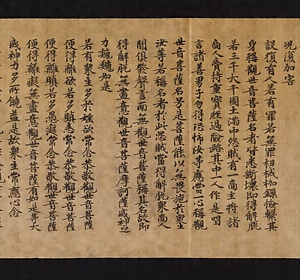 况復加害
設復有人若有罪若無罪杻械枷鎖檢繫其
身稱觀世音菩薩名者皆悉斷壞即得解脫
若三千大千國土滿中怨賊有一商主將諸
商人齎持重寶經過險路其中一人作是唱
言諸善男子勿得恐怖汝等應當一心稱觀
世音菩薩名号是菩薩能以無畏施於衆生
汝等若稱名者於此怨賊當得解脫衆商人
聞俱發聲言南無觀世音菩薩稱其名故即
得解脫無盡意觀世音菩薩摩訶薩威神之
力巍巍如是
若有衆生多於婬欲常念恭敬觀世音菩薩
便得離欲若多瞋恚常念恭敬觀世音菩薩
便得離瞋若多愚癡常念恭敬觀世音菩薩
便得離癡無盡意觀世音菩薩有如是等大
威神力多所饒益是故衆生常應心念